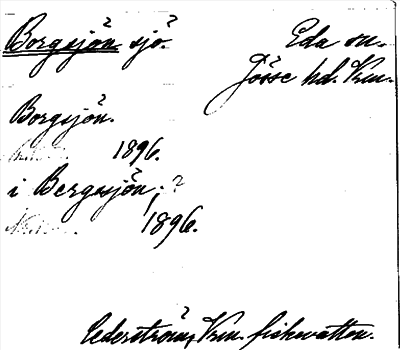 Borgsjön sjö.
Eda sn.
Jösse hd. Vrm.
Borgsjön.
1896.
i Bergsjön; ?
1896.
Cederström, Vrm. fiskevatten.